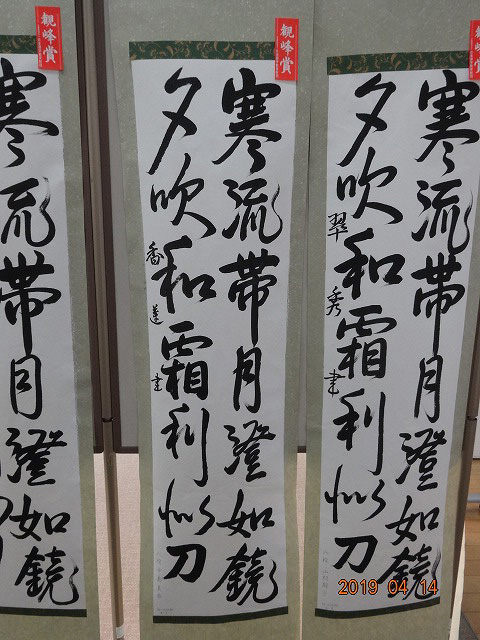 観峰賞
寒流帯月澄如鏡
夕吹和霜利似刀
翠秀書
観峰賞
寒流帯月澄如鏡
夕吹和霜利似刀
香蓮書
観峰賞
寒流帯月澄如鏡
2019 04 14